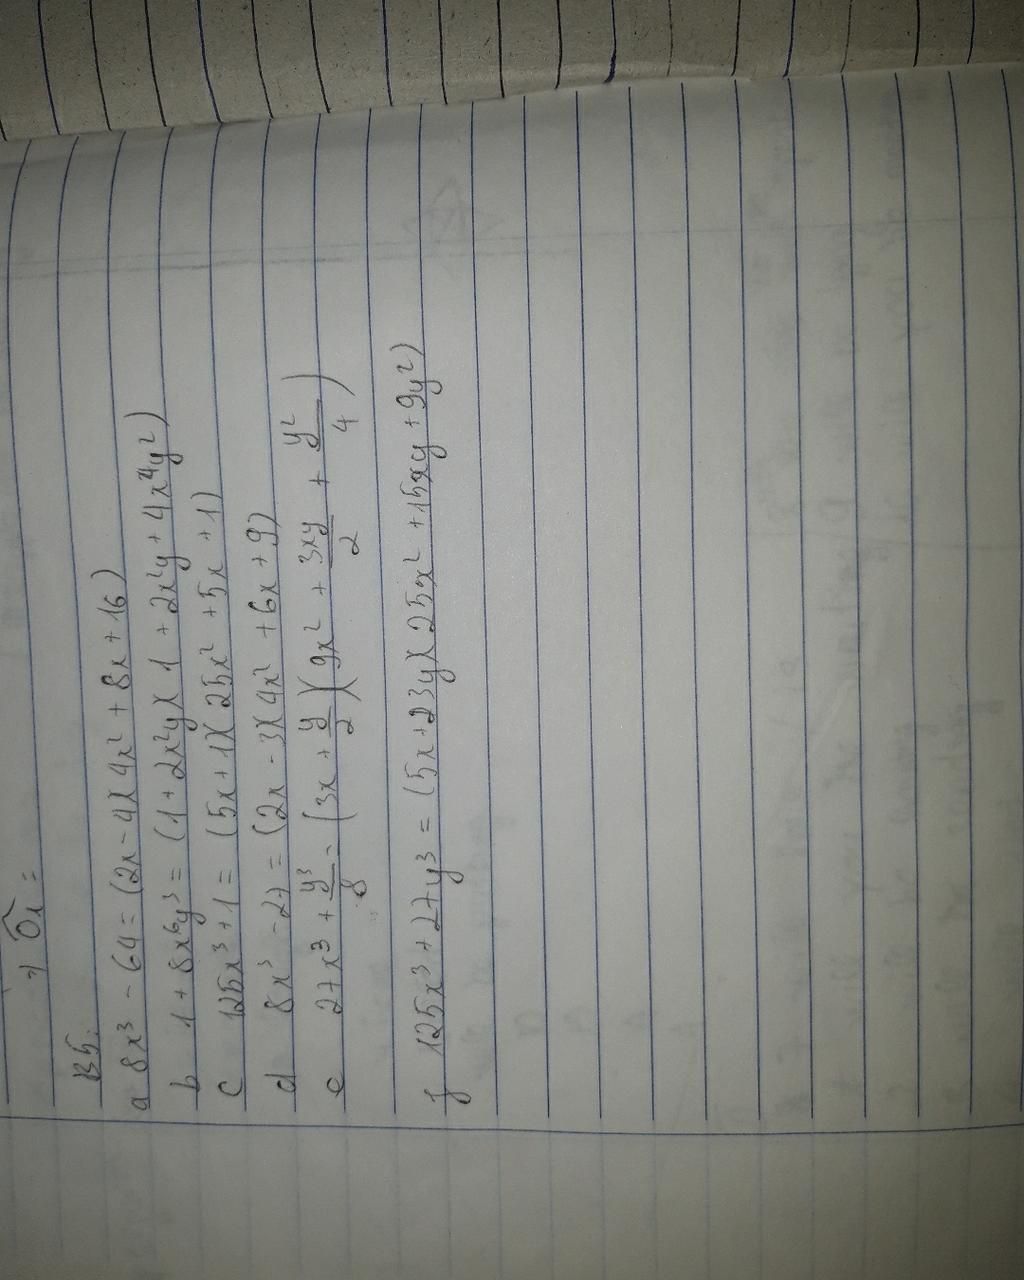 =) Ôx =
B5:
a 8x³ - 64 = (2x - 4)(4x² + 8x + 16)
b 1 + 8x⁶y³ = (1 + 2x²y)(1 + 2x²y + 4x⁴y²)
c 125x³ + 1 = (5x + 1)(25x² + 5x + 1)
d 8x³ - 27 = (2x - 3)(4x² + 6x + 9)
e 27x³ + y³/8 = (3x + y/2)(9x² + 3xy/2 + y²/4)
f 125x³ + 27y³ = (5x + 23y)(25x² + 15xy + 9y²)